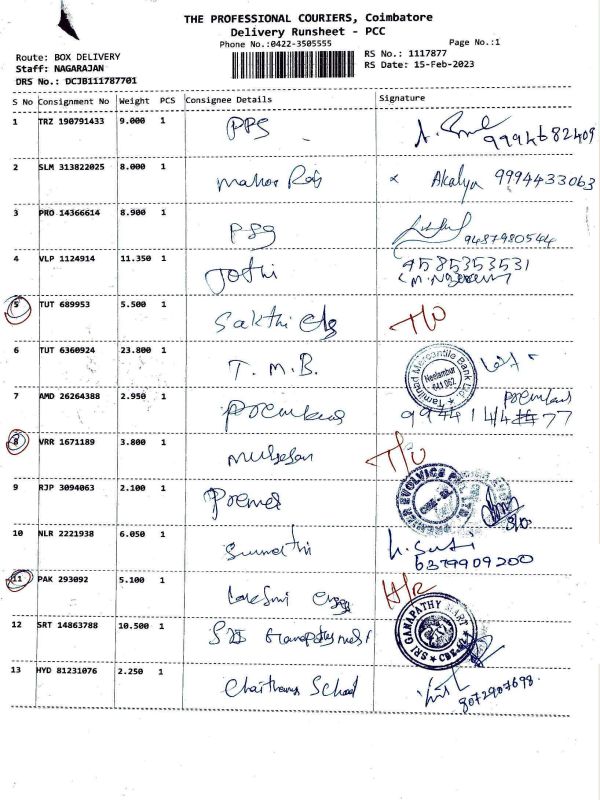 THE PROFESSIONAL COURIERS, Coimbatore
Delivery Runsheet - PCC
Phone No.:0422-3505555
Page No.:1
Route: BOX DELIVERY
RS No.: 1117877
Staff: NAGARAJAN
RS Date: 15-Feb-2023
DRS No.: DCJB111787701
S No Consignment No Weight PCS Consignee Details Signature
1 TRZ 190791433 9.000 1 PPS 9994682409
2 SLM 313822025 8.000 1 Manoj Raj x Akalya 9994433063
3 PRO 14366614 8.900 1 PSG 9487980544
4 VLP 1124914 11.350 1 Jothi 9585353531
5 TUT 689953 5.500 1 Sakthi T/O
6 TUT 6360924 23.800 1 T.M.B. Tamilnad Mercantile Bank Ltd. Neelambur 641 062
7 AMD 26264388 2.950 1
8 VRR 1671189 3.800 1 T/O
9 RJP 3094063 2.100 1 PREMIER EVOLVICS
10 NLR 2221938 6.050 1 Sumathi 6379909200
11 PAK 293092 5.100 1 Lakshmi Engg
12 SRT 14863788 10.500 1 Sri Ganapathy SRI GANAPATHY MART
13 HYD 81231076 2.250 1 Chaithanya School 8072907698